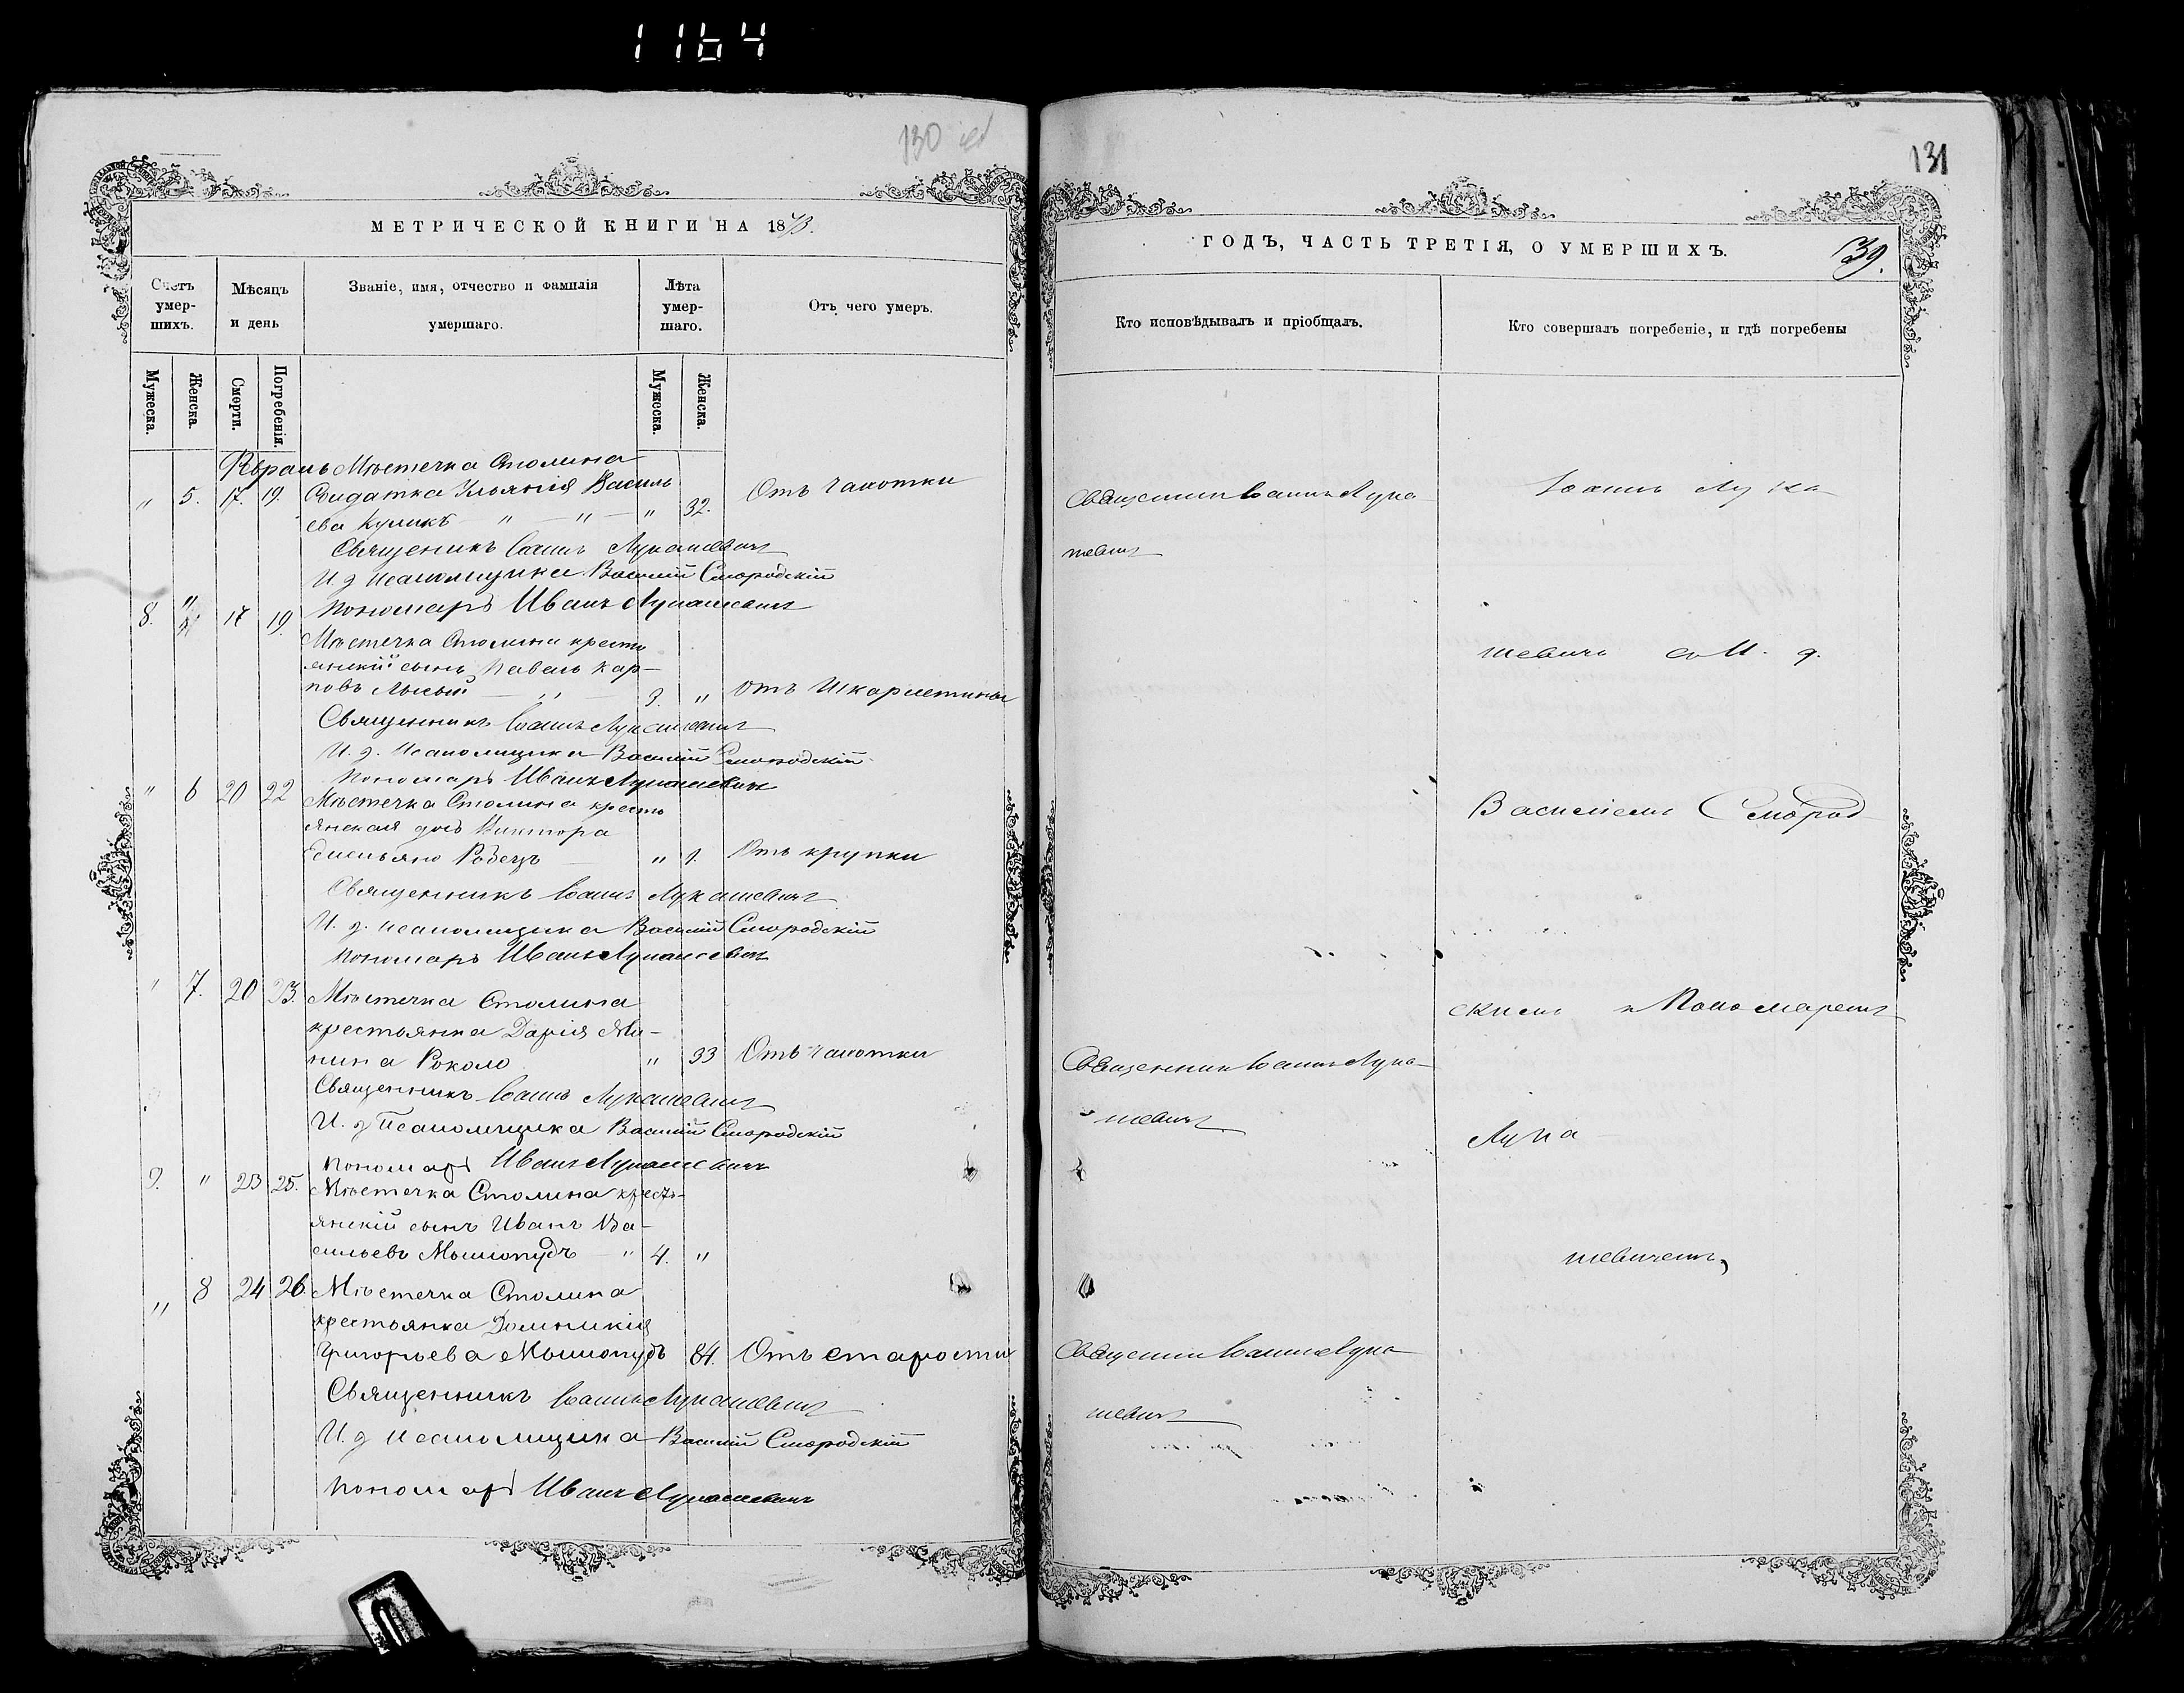 1164
130
131
МЕТРИЧЕСКОЙ КНИГИ НА 1878.
ГОДЪ, ЧАСТЬ ТРЕТІЯ, О УМЕРШИХЪ.
39.
Счетъ умер-
шихъ.
Мѣсяцъ
и день
Званіе, имя, отчество и фамилія
умершаго.
Лѣта
умер-
шаго.
Отъ чего умеръ.
Кто исповѣдывалъ и пріобщалъ.
Кто совершалъ погребеніе, и гдѣ погребены
Мужеска.
Женска.
Смерти.
Погребенія.
Мужеска.
Женска.
Мѣстечка Столина
" 5. 17. 19. Солдатка Ульянія Василь
ева Куликъ " " " 32. Отъ чахотки
Священникъ Іоаннъ Лукашевичъ
И. д. псаломщика Василій Смородскій
Пономарь Иванъ Лукашевичъ
8. " 17 19. Мѣстечка Столина кресть
янскій сынъ Павелъ Кар-
повъ Лысый " 3. " Отъ шкарлетины
Священникъ Іоаннъ Лукашевичъ
И. д. псаломщика Василій Смородскій
Пономарь Иванъ Лукашевичъ
" 6 20 22 Мѣстечка Столина кресть
янская дочь
" 1. Отъ крупки
Священникъ Іоаннъ Лукашевичъ
И. д. псаломщика Василій Смородскій
Пономарь Иванъ Лукашевичъ
" 7. 20 23. Мѣстечка Столина
крестьянка Дарія Ми-
нина Роколо " 33 Отъ чахотки
Священникъ Іоаннъ Лукашевичъ
И. д. псаломщика Василій Смородскій
Пономарь Иванъ Лукашевичъ
9. " 23 25. Мѣстечка Столина кресть-
янскій сынъ Иванъ Ва-
сильевъ " 4. "
" 8 24 26. Мѣстечка Столина
крестьянка Домникія
Григорьева 84. Отъ старости
Священникъ Іоаннъ Лукашевичъ
И. д. псаломщика Василій Смородскій
Пономарь Иванъ Лукашевичъ
Священник Іоаннъ Лука
шевичъ
Священник Іоаннъ Лука-
шевичъ
Священник Іоаннъ Лука
шевичъ
Іоаннъ Лука
шевичъ съ И. д.
Василіемъ Смород
скимъ и Пономаремъ
Лука
шевичемъ,